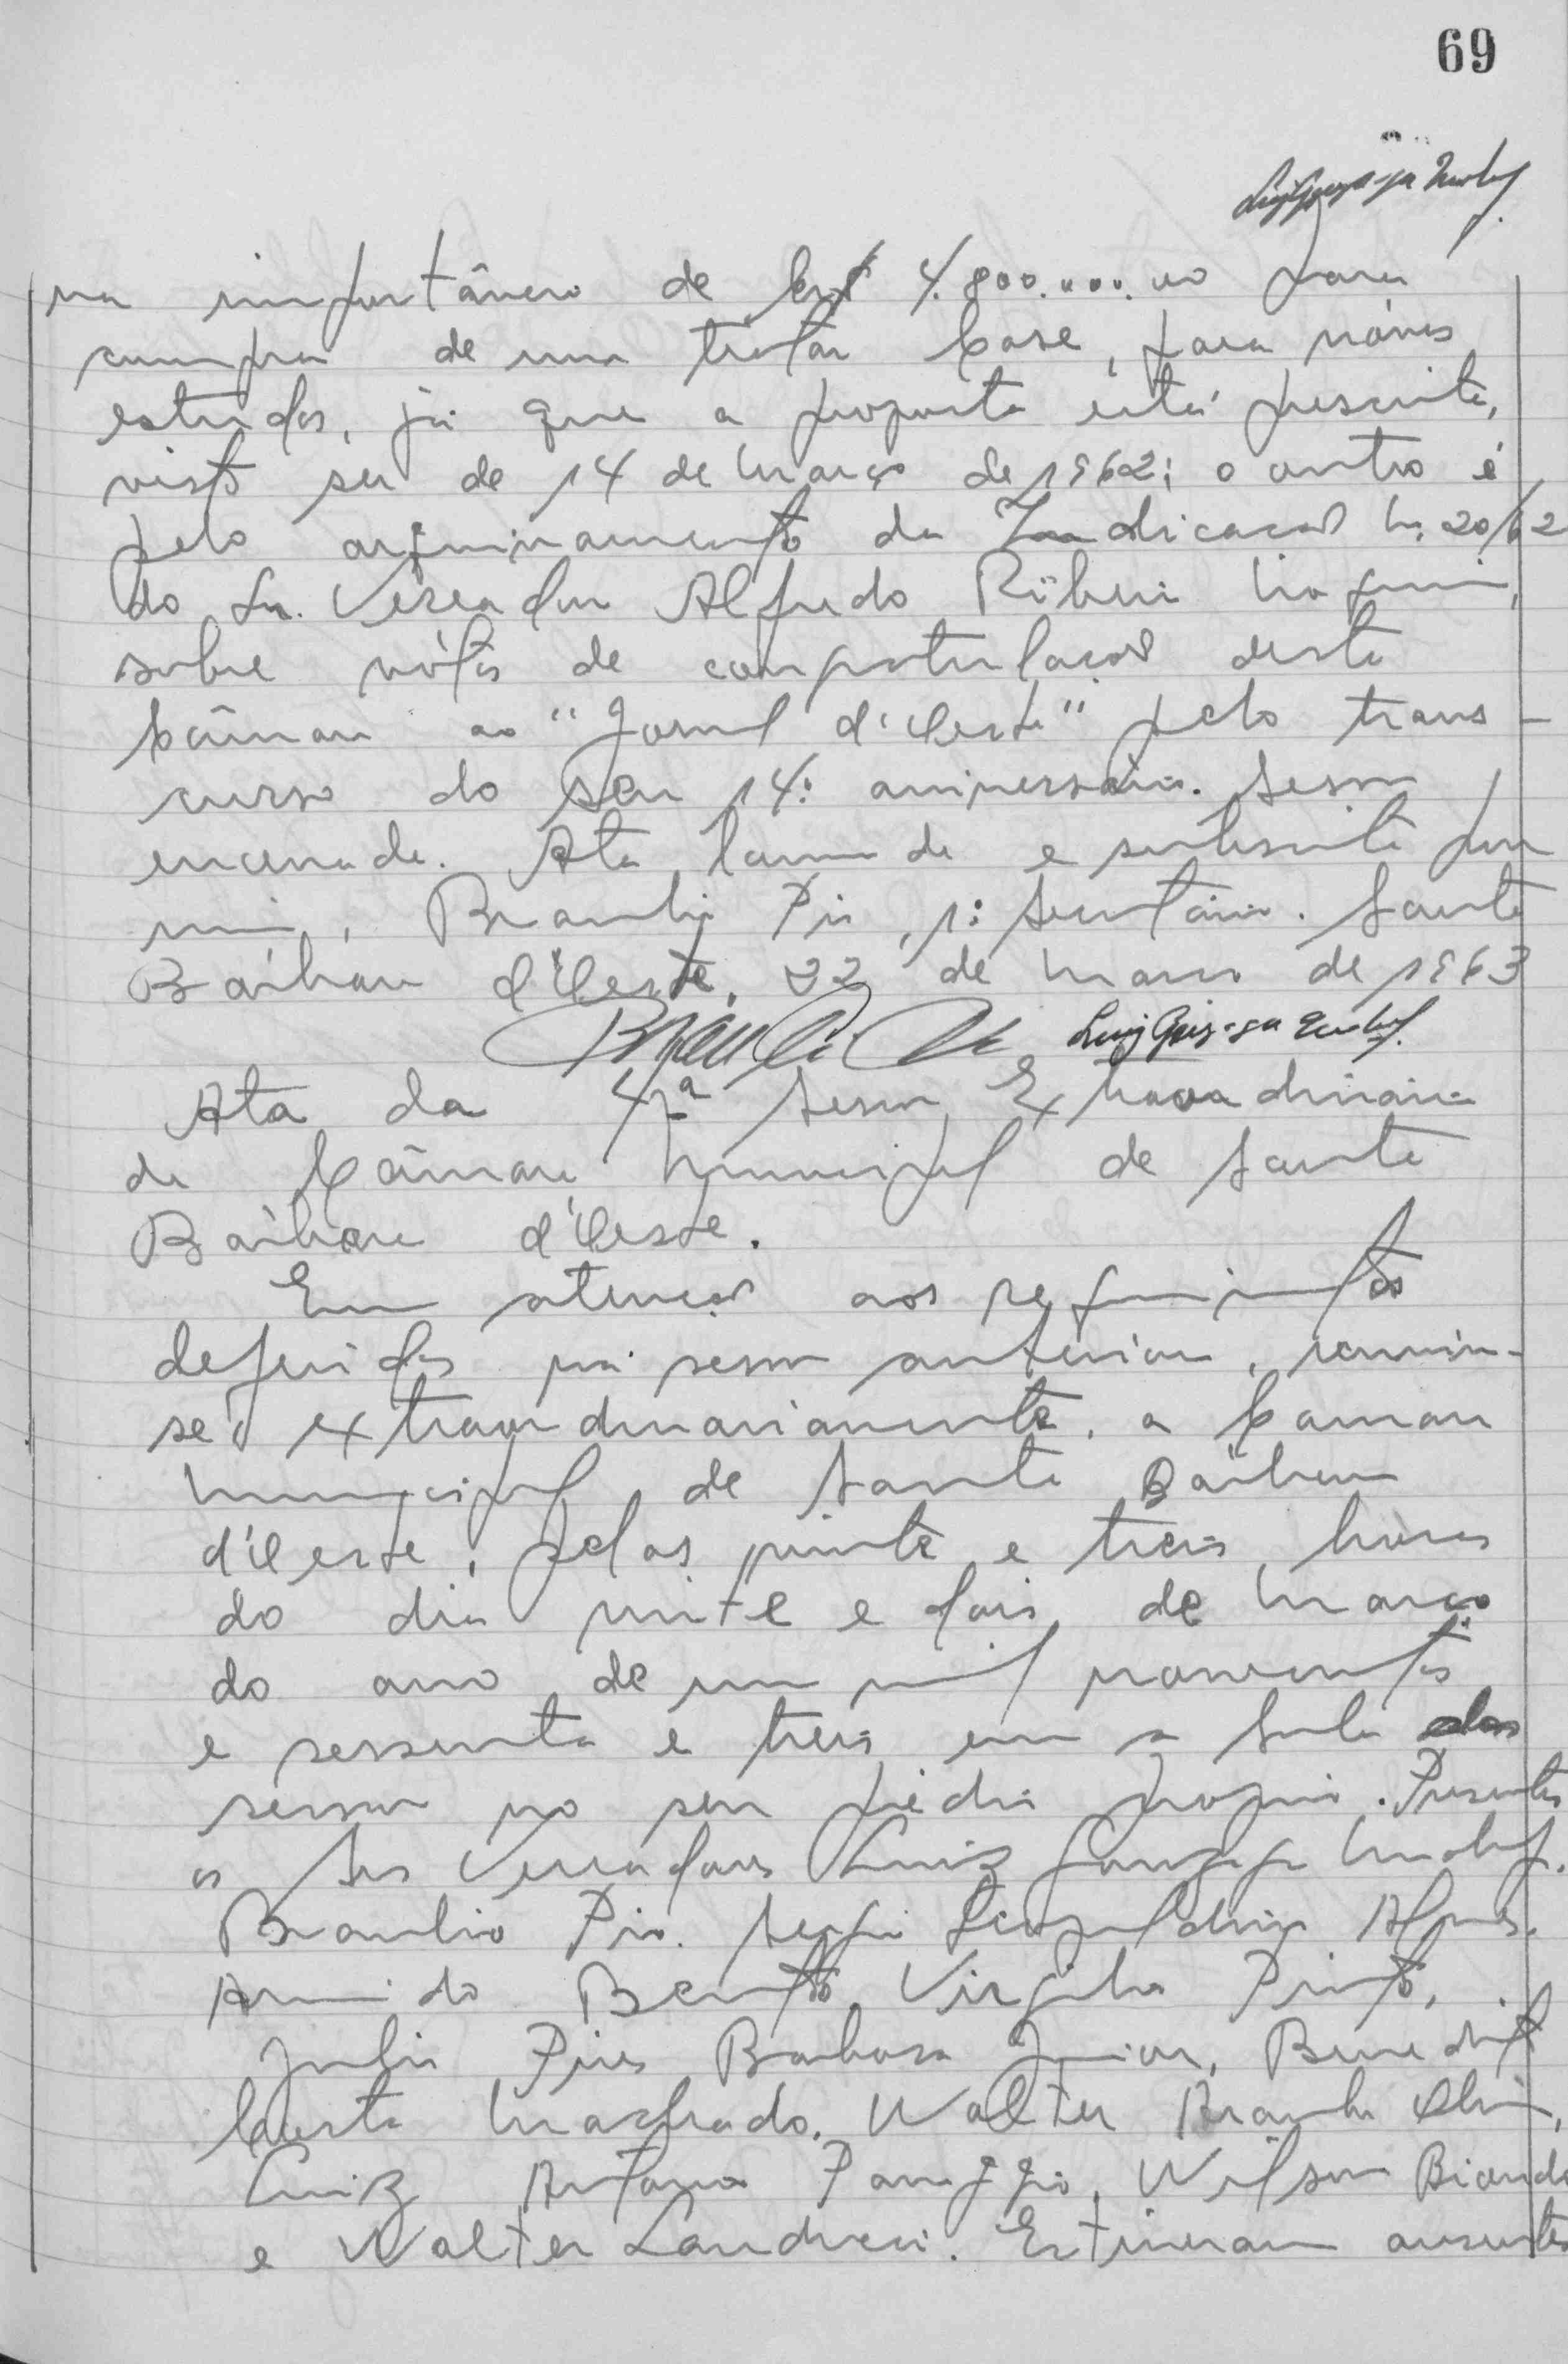 69
na importância de Cr$ 4.800.000,00 para
compra de um trator Case, para novos
estudos, já que a proposta está prescrita,
visto ser de 14 de março de 1962; o outro é
pelo arquivamento da Indicação n. 20/62
do Sr. Vereador Alfredo Ribeiro
sobre votos de congratulação desta
Câmara ao "Jornal d'Oeste" pelo trans-
curso do seu 14º aniversário. Sessão
encerrada. Ata lavrada e subscrita por
mim, Braulio Pio, 1º Secretário. Santa
Bárbara d'Oeste, 22 de março de 1963
Braulio Pio
Ata da 4ª Sessão Extraordinária
da Câmara Municipal de Santa
Bárbara d'Oeste.
Em atenção aos requerimentos
deferidos na sessão anterior, reuniu-
se, extraordinariamente, a Camara
Municipal de Santa Bárbara
d'Oeste, pelas vinte e treis horas
do dia vinte e dois de março
do ano de um mil novecentos
e sessenta e treis em a sala das
sessões no seu prédio proprio. Presentes
os Srs Vereadores Luiz Gonzaga
Braulio Pio, Sergio Leopoldino Alves,
Armindo Bento, Virgilio Pinto,
Julio Pires Barbosa Junior, Benedito
Costa Machado, Walter
Luiz Antonio Panaggio, Wilson
e Walter Landucci. Estiveram ausentes